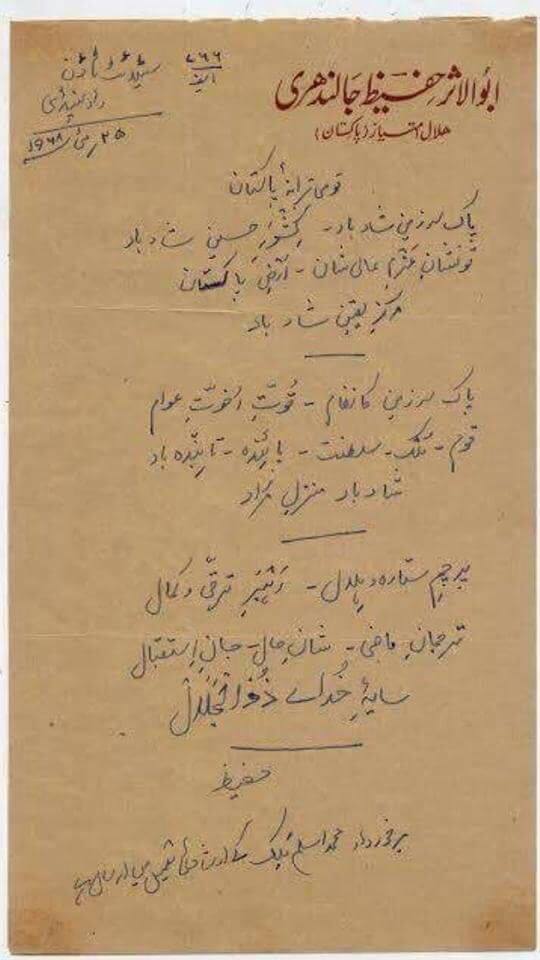 ابوالاثر حفیظ جالندھری
ہلال امتیاز (پاکستان)
۷۸۶
سیٹلائٹ ٹاؤن
راولپنڈی
۲۵ مئی ۱۹۶۸
قومی ترانۂ پاکستان
پاک سرزمین شاد باد - کِشْوَرِ حسین شاد باد
تو نشانِ عَزْمِ عالی شان - ارضِ پاکستان
مرکزِ یقین شاد باد
پاک سرزمین کا نظام - قُوّتِ اُخوّتِ عوام
قوم - مُلک - سلطنت - پائندہ - تابندہ باد
شاد باد منزلِ مُراد
پرچمِ ستارہ و ہلال - رَہبَرِ ترقّی و کمال
ترجمانِ ماضی - شانِ حال - جانِ اِستقبال
سایۂ خُدائے ذُوالجَلال
حفیظ
برخوردار محمد اسلم ملک کے ارشاد کی تعمیل میں